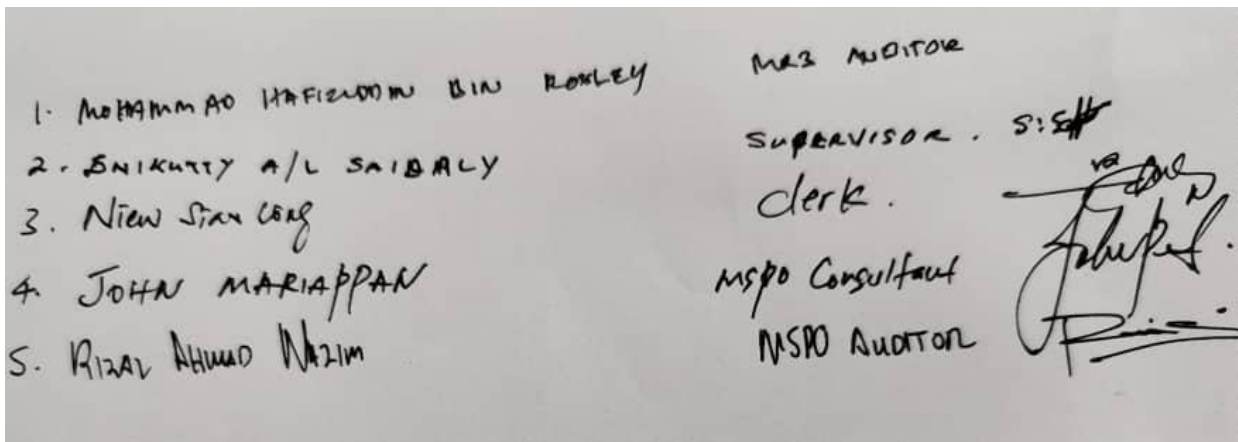 1. MOHAMMAD HAFIZUDDIN BIN ROSLEY MR3 AUDITOR
2. ENIKUTTY A/L SAIDALY SUPERVISOR.
3. Niew Sian Long Clerk.
4. JOHN MARIAPPAN MSPO Consultant
5. RIZAL AHMAD NAZIM MSPO AUDITOR